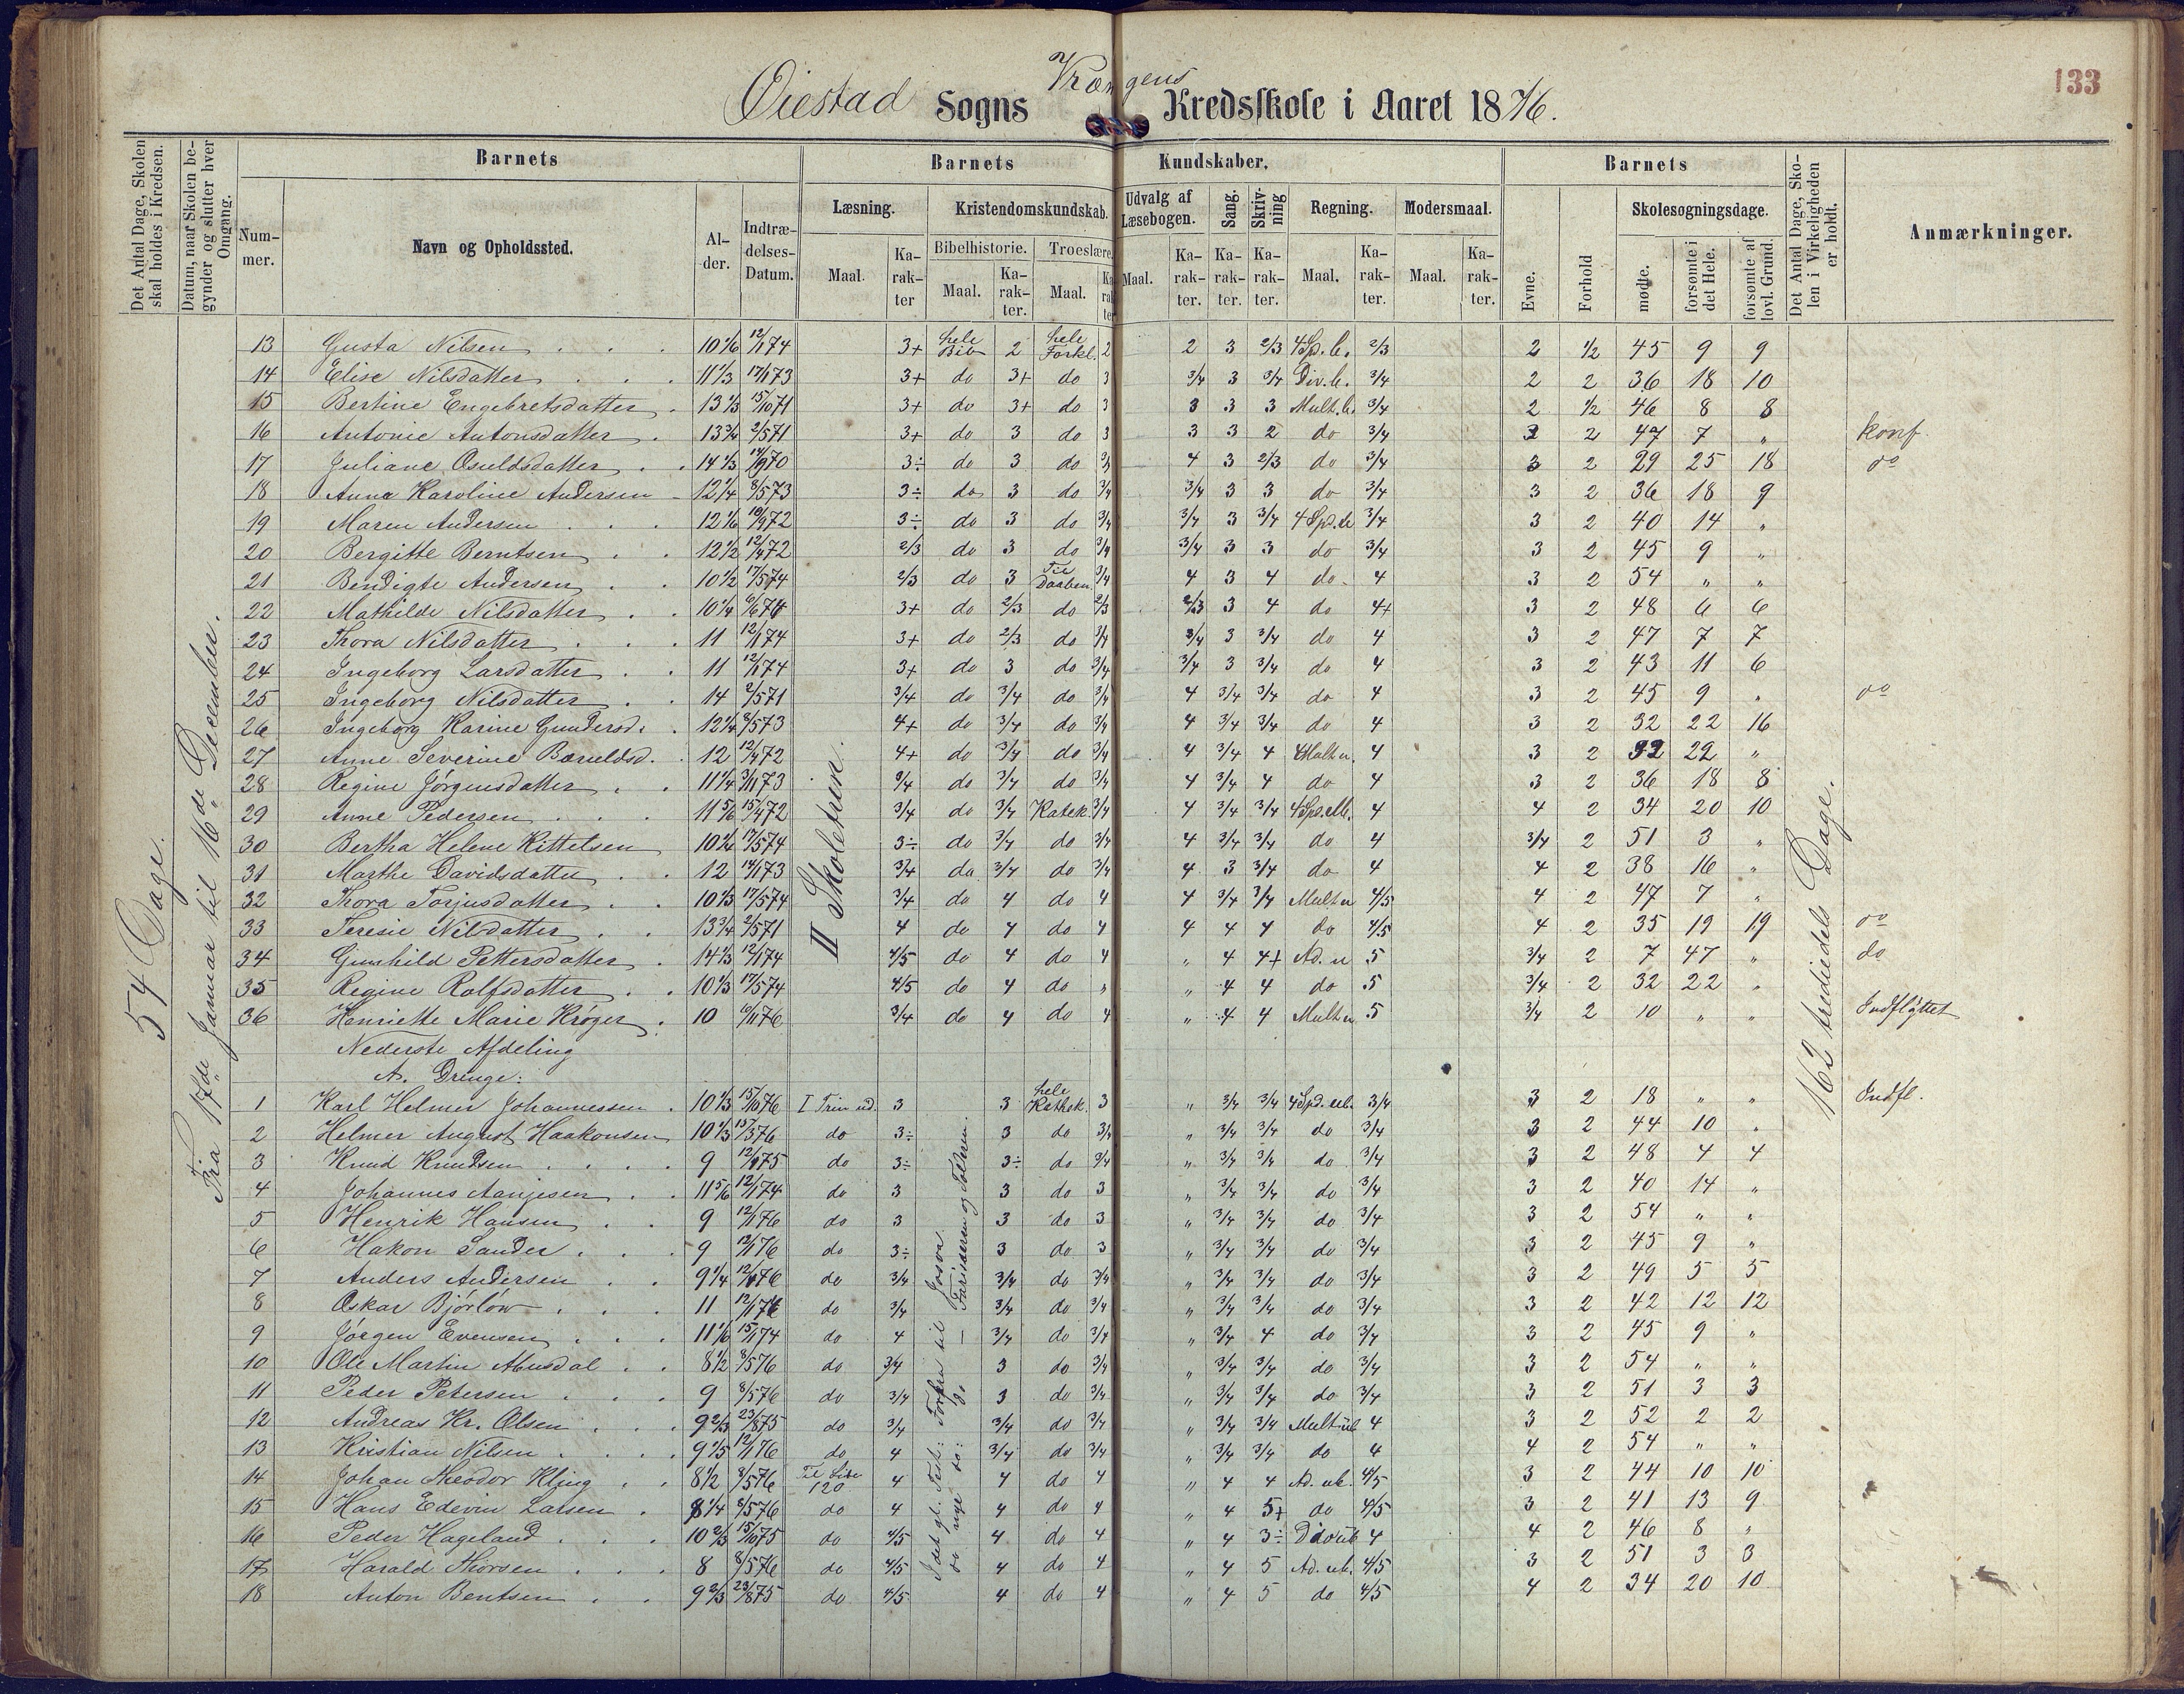 133
Øiestad Sogns Vrængens Kredsskole i Aaret 1876.
Det Antal Dage, Skolen skal holdes i Kredsen.
Datum, naar Skolen begynder og slutter hver Omgang.
Barnets
Barnets Kundskaber.
Barnets
Det Antal Dage, Skolen i Virkeligheden er holdt.
Anmærkninger.
Nummer.
Navn og Opholdssted.
Alder.
Indtrædelses-Datum.
Læsning.
Kristendomskundskab.
Udvalg af Læsebogen.
Sang.
Skrivning
Regning.
Modersmaal.
Evne.
Forhold
Skolesøgningsdage.
Bibelhistorie.
Troeslære.
Maal.
Karakter
Maal.
Karakter.
Maal.
Karakter
Maal.
Karakter.
Karakter.
Karakter.
Maal.
Karakter.
Maal.
Karakter.
mødte.
forsømte i det Hele.
forsømte af lovl. Grund.
54 Dage.
Fra 17de Januar til 16de December.
II Skoletrin.
162 trediedels Dage.
13 Gusta Nilsen 10 1/6 12/1 74 3+ hele Bib 2 hele Forkl. 2 2 3 2/3 4 Sp. b. 2/3 2 1/2 45 9 9
14 Elise Nilsdatter 11 1/3 17/1 73 3+ do 3+ do 3 3/4 3 3/4 Div. b. 3/4 2 2 36 18 10
15 Bertine Engebretsdatter 13 1/3 15/10 71 3+ do 3+ do 3 3 3 3 Mult. b. 3/4 2 1/2 46 8 8
16 Antonie Antonsdatter 13 3/4 2/5 71 3+ do 3 do 3 3 3 2 do 3/4 2 2 47 7 " konf.
17 Juliane Osuldsdatter 14 1/3 14/9 70 3÷ do 3 do 3/4 4 3 2/3 do 3/4 3 2 29 25 18 do
18 Anna Karoline Andersen 12 1/4 8/5 73 3÷ do 3 do 3/4 3/4 3 3 do 3/4 3 2 36 18 9
19 Maren Andersen 12 1/6 10/9 72 3÷ do 3 do 3/4 3/4 3 3/4 4 Sp. b 3/4 3 2 40 14 "
20 Bergitte Berntsen 12 1/2 12/4 72 2/3 do 3 do 3/4 3/4 3 3 do 3/4 3 2 45 9 "
21 Bendigte Andersen 10 1/2 17/5 74 2/3 do 3 Til Daaben 3/4 4 3 4 do 4 3 2 54 " "
22 Mathilde Nilsdatter 10 1/4 6/6 74 3+ do 2/3 do 2/3 2/3 3 4 do 4+ 3 2 48 6 6
23 Thora Nilsdatter 11 12/1 74 3+ do 2/3 do 3/4 3/4 3 3/4 do 4 3 2 47 7 7
24 Ingeborg Larsdatter 11 12/1 74 3+ do 3 do 3/4 3/4 3 3/4 do 4 3 2 43 11 6
25 Ingeborg Nilsdatter 14 2/5 71 3/4 do 3/4 do 3/4 4 3/4 3/4 do 4 3 2 45 9 " do
26 Ingeborg Karine Gundersd. 12 1/4 8/5 73 4+ do 3/4 do 3/4 4 3/4 3/4 do 4 3 2 32 22 16
27 Anne Severine 12 12/4 72 4+ do 3/4 do 3/4 4 3/4 4 Mult u. 4 3 2 32 22 "
28 Regine Jørgensdatter 11 1/4 3/11 73 3/4 do 3/4 do 3/4 4 3/4 4 do 4 3 2 36 18 8
29 Anne Pedersen 11 5/6 15/4 72 3/4 do 3/4 Katek. 3/4 4 3/4 3/4 4 Sp. 4 4 2 34 20 10
30 Bertha Helene Kittelsen 10 3/4 17/5 74 3÷ do 3/4 do 3/4 4 3/4 3/4 do 4 3/4 2 51 3 "
31 Marthe Davidsdatter 12 14/1 73 3/4 do 3/4 do 3/4 4 3 3/4 do 4 4 2 38 16 "
32 Thora Torjusdatter 10 1/3 17/5 74 3/4 do 4 do 4 4 3/4 3/4 Mult u 4/5 4 2 47 7 "
33 Teresie Nilsdatter 13 3/4 2/5 71 4 do 4 do 4 4 4 4 do 4/5 4 2 35 19 19 do
34 Gunhild Pettersdatter 14 1/3 12/1 74 4/5 do 4 do 4 " 4 4+ Ad. u 5 3/4 2 7 47 " do
35 Regine Rolfsdatter 10 1/3 17/5 74 4/5 do 4 do " " 4 4 do 5 3/4 2 32 22 "
36 Henriette Marie Krøger 10 10/11 76 3/4 do 4 do 4 " 4 4 Mult u 5 3/4 2 10 " " Indflyttet
Nederste Afdeling
A. Drenge:
I det gl. Test: Forfra til Josva
do nye do: do — Farisæeren og Tolderen
1 Karl Helmer Johannessen 10 1/3 15/10 76 I Trin ud. 3 3 hele Kathek. 3 " 3/4 3/4 4 Sp. ub. 3/4 3 2 18 " " Indfl.
2 Helmer August Haakonsen 10 1/3 15/3 76 do 3÷ 3 do 3/4 " 3/4 3/4 do 3/4 3 2 44 10 "
3 Knud Knudsen 9 12/1 75 do 3÷ 3÷ do 3/4 " 3/4 3/4 do 3/4 3 2 48 4 4
4 Johannes Aanjesen 11 5/6 12/1 74 do 3 3 do 3 " 3/4 3/4 do 3/4 3 2 40 14 "
5 Henrik Hansen 9 12/1 76 do 3 3 do 3 " 3/4 3/4 do 3/4 3 2 54 " "
6 Hakon Sander 9 12/1 76 do 3÷ 3 do 3 " 3/4 3/4 do 3/4 3 2 45 9 "
7 Anders Andersen 9 1/4 12/1 76 do 3/4 3/4 do 3/4 " 3/4 3/4 do 3/4 3 2 49 5 5
8 Oskar Bjørløw 11 12/1 76 do 3/4 3/4 do 3/4 " 3/4 3/4 do 3/4 3 2 42 12 12
9 Jørgen Evensen 11 1/6 15/1 74 do 4 3/4 do 3/4 " 3/4 4 do 3/4 3 2 45 9 "
10 Ole Martin Abusdal 8 1/2 8/5 76 do 3/4 3 do 3/4 " 3/4 3/4 do 3/4 3 2 54 " "
11 Peder Petersen 9 8/5 76 do 3/4 3 do 3/4 " 3/4 3/4 do 3/4 3 2 51 3 3
12 Andreas Kr. Olsen 9 2/3 23/8 75 do 3/4 3/4 do 3/4 " 3/4 3/4 Mult ub 4 3 2 52 2 2
13 Kristian Nilsen 9 1/5 12/1 76 do 4 3/4 do 3/4 " 3/4 3/4 do 4 4 2 54 " "
14 Johan Theodor Kling 8 1/2 8/5 76 Til Side 120 4 4 do 4 " 4 4 Ad. ub. 4/5 3 2 44 10 10
15 Hans Edevin Larsen 8 1/4 8/5 76 do 4 4 do 4 " 4 5+ do 4/5 3 2 41 13 9
16 Peder Hageland 10 2/3 15/10 75 do 4/5 4 do 4 " 4 3÷ 4 4 2 46 8 "
17 Harald Thorsen 8 8/5 76 do 4/5 4 do 4 " 4 5 Ad. ub. 4/5 3 2 51 3 3
18 Anton Bentsen 9 2/3 23/8 75 do 4/5 4 do 4 " 4 5 do 4/5 4 2 34 20 10